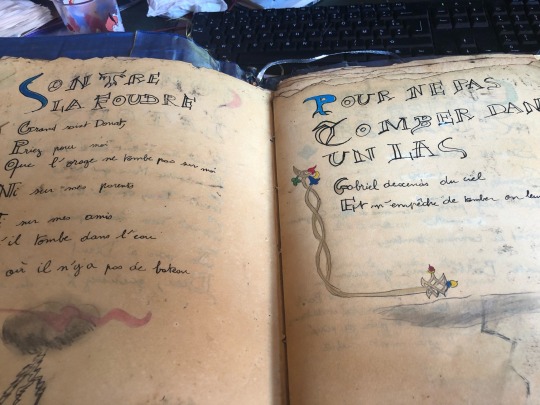 SONTRE
LA FOUDRE
Grand saint Donat,
Priez pour moi
Que l'orage ne tombe pas sur moi
Ni sur mes parents
Ni sur mes amis
'il tombe dans l'eau
où il n'y a pas de bateau
POUR NE PAS
TOMBER DAN
UN LAS
Gabriel descends du ciel
Et m'empêche de tomber en leu